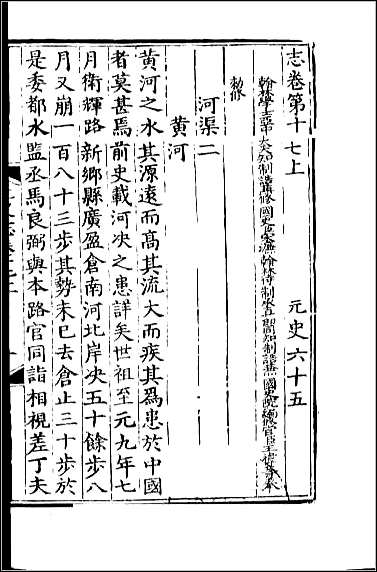 志卷第十七上
元史六十五
翰林學士亞中大夫知制誥兼修國史臣宋濂翰林待制承直郎同知制誥兼國史院編修官臣王禕等奉
勅修
河渠二
黃河
黃河之水其源遠而高其流大而疾其爲患於中國
者莫甚焉前史載河決之患詳矣世祖至元九年七
月衛輝路新鄉縣廣盈倉南河北岸決五十餘步八
月又崩一百八十三步其勢未已去倉止三十步於
是委都水監丞馬良弼與本路官同詣相視差丁夫